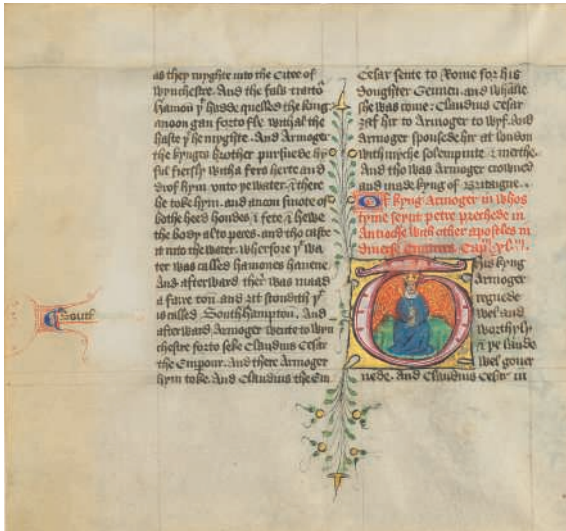 as they myghte into the Citee of
wynchestre. And the fals traito
hamon yͭ hadde quelled the king
anoon gan forto fle withal the
haste yͭ he myghte. And Armoger
the kynges brother pursuede hy
ful fiersly with a fers herte and
drof hym vnto yͤ water. & there
he toke hym. and anoon smote of
bothe heed hondes & fete & hewe
the body al to peces. and tho caste
it into the water. wherfore yͭ wa
ter was called hamones hauene.
And afterward ther was maad
a faire ton. and ȝit stondith yͭ
is called Southhampton. And
afterward Armoger wente to wyn
chestre forto seke Claudius Cesar
the Emperour. And there Armoger
hym toke. And Claudius the Em
South
Cesar sente to Rome for his
doughter Gennen. and whanne
she was come: Claudius Cesar
ȝaf hir to Armoger to wyf. And
Armoger spousede hir at london
with myche solempnite & merthe.
And tho was Armoger crowned
and made kyng of Britaigne.
Of kyng Armoger in whos
tyme seynt petre prechede in
Antioche with other apostles in
diuerse
This kyng
Armoger
regnede
wel and
worthyly
& þe lande
wel gouer
nede. and Claudius Cesar in